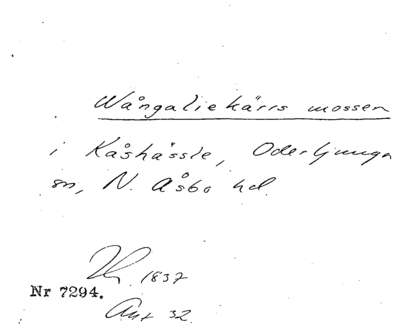 Wångaliekärrs mossen
i Kåshässle, Oderljunga
sn, N. Åsbo hd.
1837
Nr 7294.
Ant 32